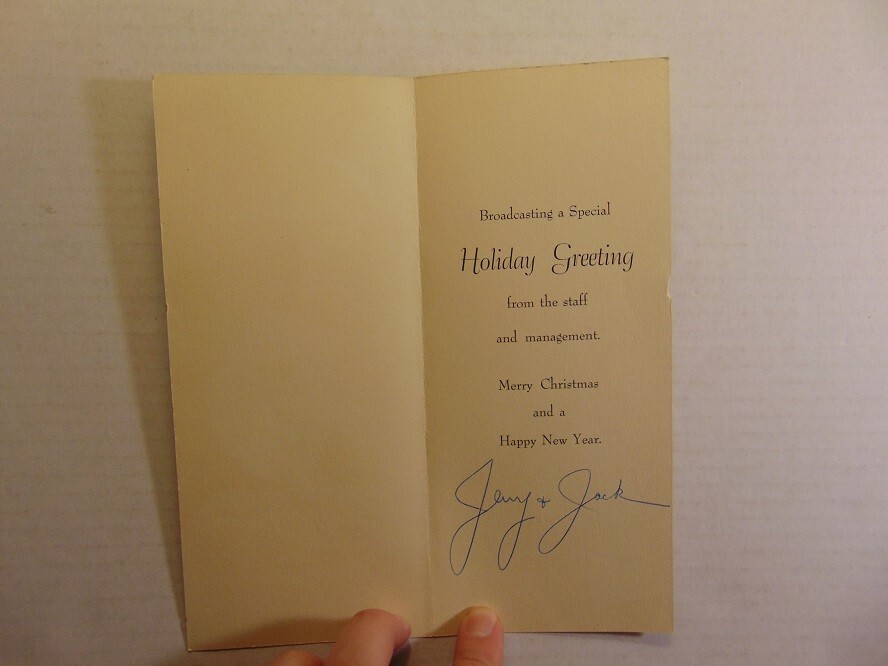 Broadcasting a Special
Holiday Greeting
from the staff
and management.
Merry Christmas
and a
Happy New Year.
Jerry & Jack